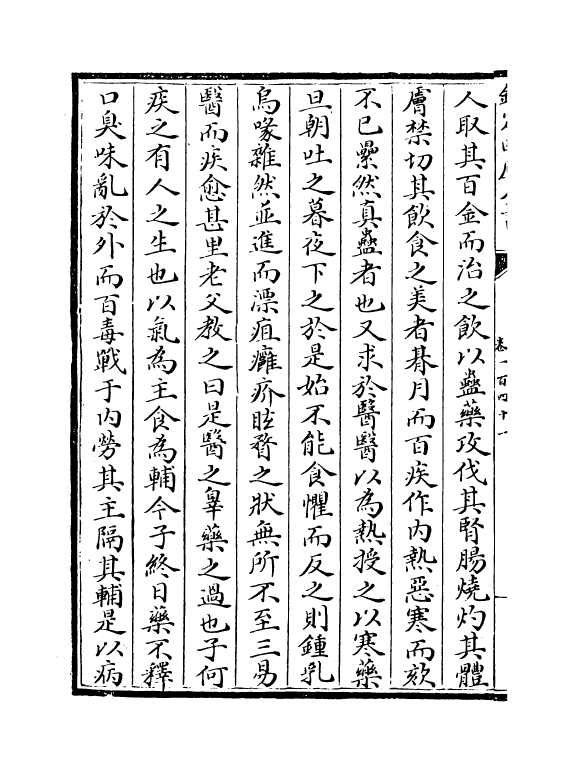 人取其百金而治之飲以蠱藥攻伐其腎腸燒灼其體
膚禁切其飲食之美者朞月而百疾作内熱惡寒而欬
不已纍然真蠱者也又求於醫醫以為熱授之以寒藥
旦朝吐之暮夜下之於是始不能食懼而反之則鍾乳
烏喙雜然並進而漂疽癰疥眩瞀之狀無所不至三易
醫而疾愈甚里老父教之曰是醫之辠藥之過也子何
疾之有人之生也以氣為主食為輔今子終日藥不釋
口臭味亂於外而百毒戰于内勞其主隔其輔是以病
卷一百四十一